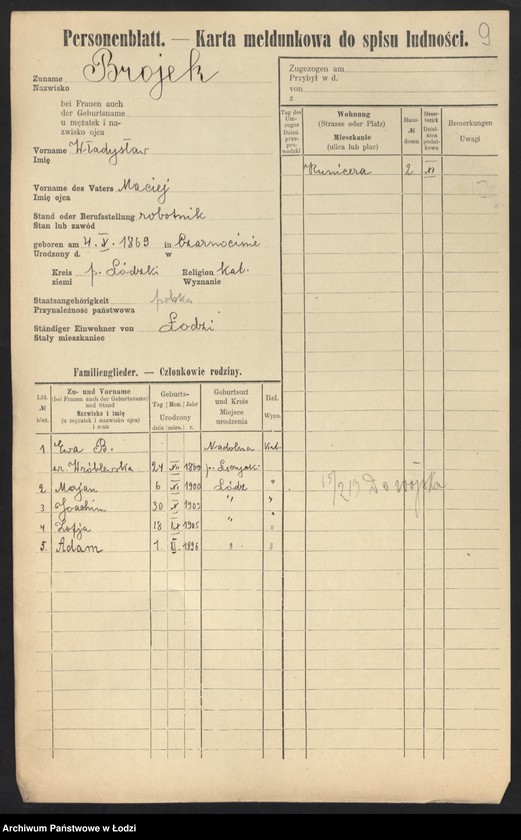 Personenblatt. — Karta meldunkowa do spisu ludności.
9
Zuname
Nazwisko
Brojek
bei Frauen auch
der Geburtsname
u mężatek i na-
zwisko ojca
Vorname Władysław
Imię
Vorname des Vaters Maciej
Imię ojca
Stand oder Berufsstellung robotnik
Stan lub zawód
geboren am 4. X. 1869 in Czarnocinie
Urodzony d. w
Kreis p. Łódzki Religion kat.
ziemi Wyznanie
Staatsangehörigkeit polska
Przynależność państwowa
Ständiger Einwohner von Łodzi
Stały mieszkaniec
Zugezogen am
Przybył w d.
von
z
Tag des Um-
zuges
Dzień
prze-
prowadzki
Wohnung
(Strasse oder Platz)
Mieszkanie
(ulica lub plac)
Haus-
№
domu
Bemerkungen
Uwagi
Kunicera 2 XI
Familienglieder. — Członkowie rodziny.
Lfd.
№
Zu- und Vorname
(bei Frauen auch der Geburtsname)
und Stand
Nazwisko i imię
(u mężatek i nazwisko ojca)
i stan
Geburts-
Tag | Mon. | Jahr
Urodzony
dnia | mies. | r.
Geburtsort
und Kreis
Miejsce
urodzenia
Rel.
Wyzn.
1 Ewa B. Nadolna Kat.
Wróblewska 24 XII 1869
2 Marjan 6 XI 1900 Łódz "
3 Joachim 30 X 1903 " "
4 Zofja 18 1905 " "
5. Adam 1 XI 1896 " "
15/2 19 Do wojska
Archiwum Państwowe w Łodzi